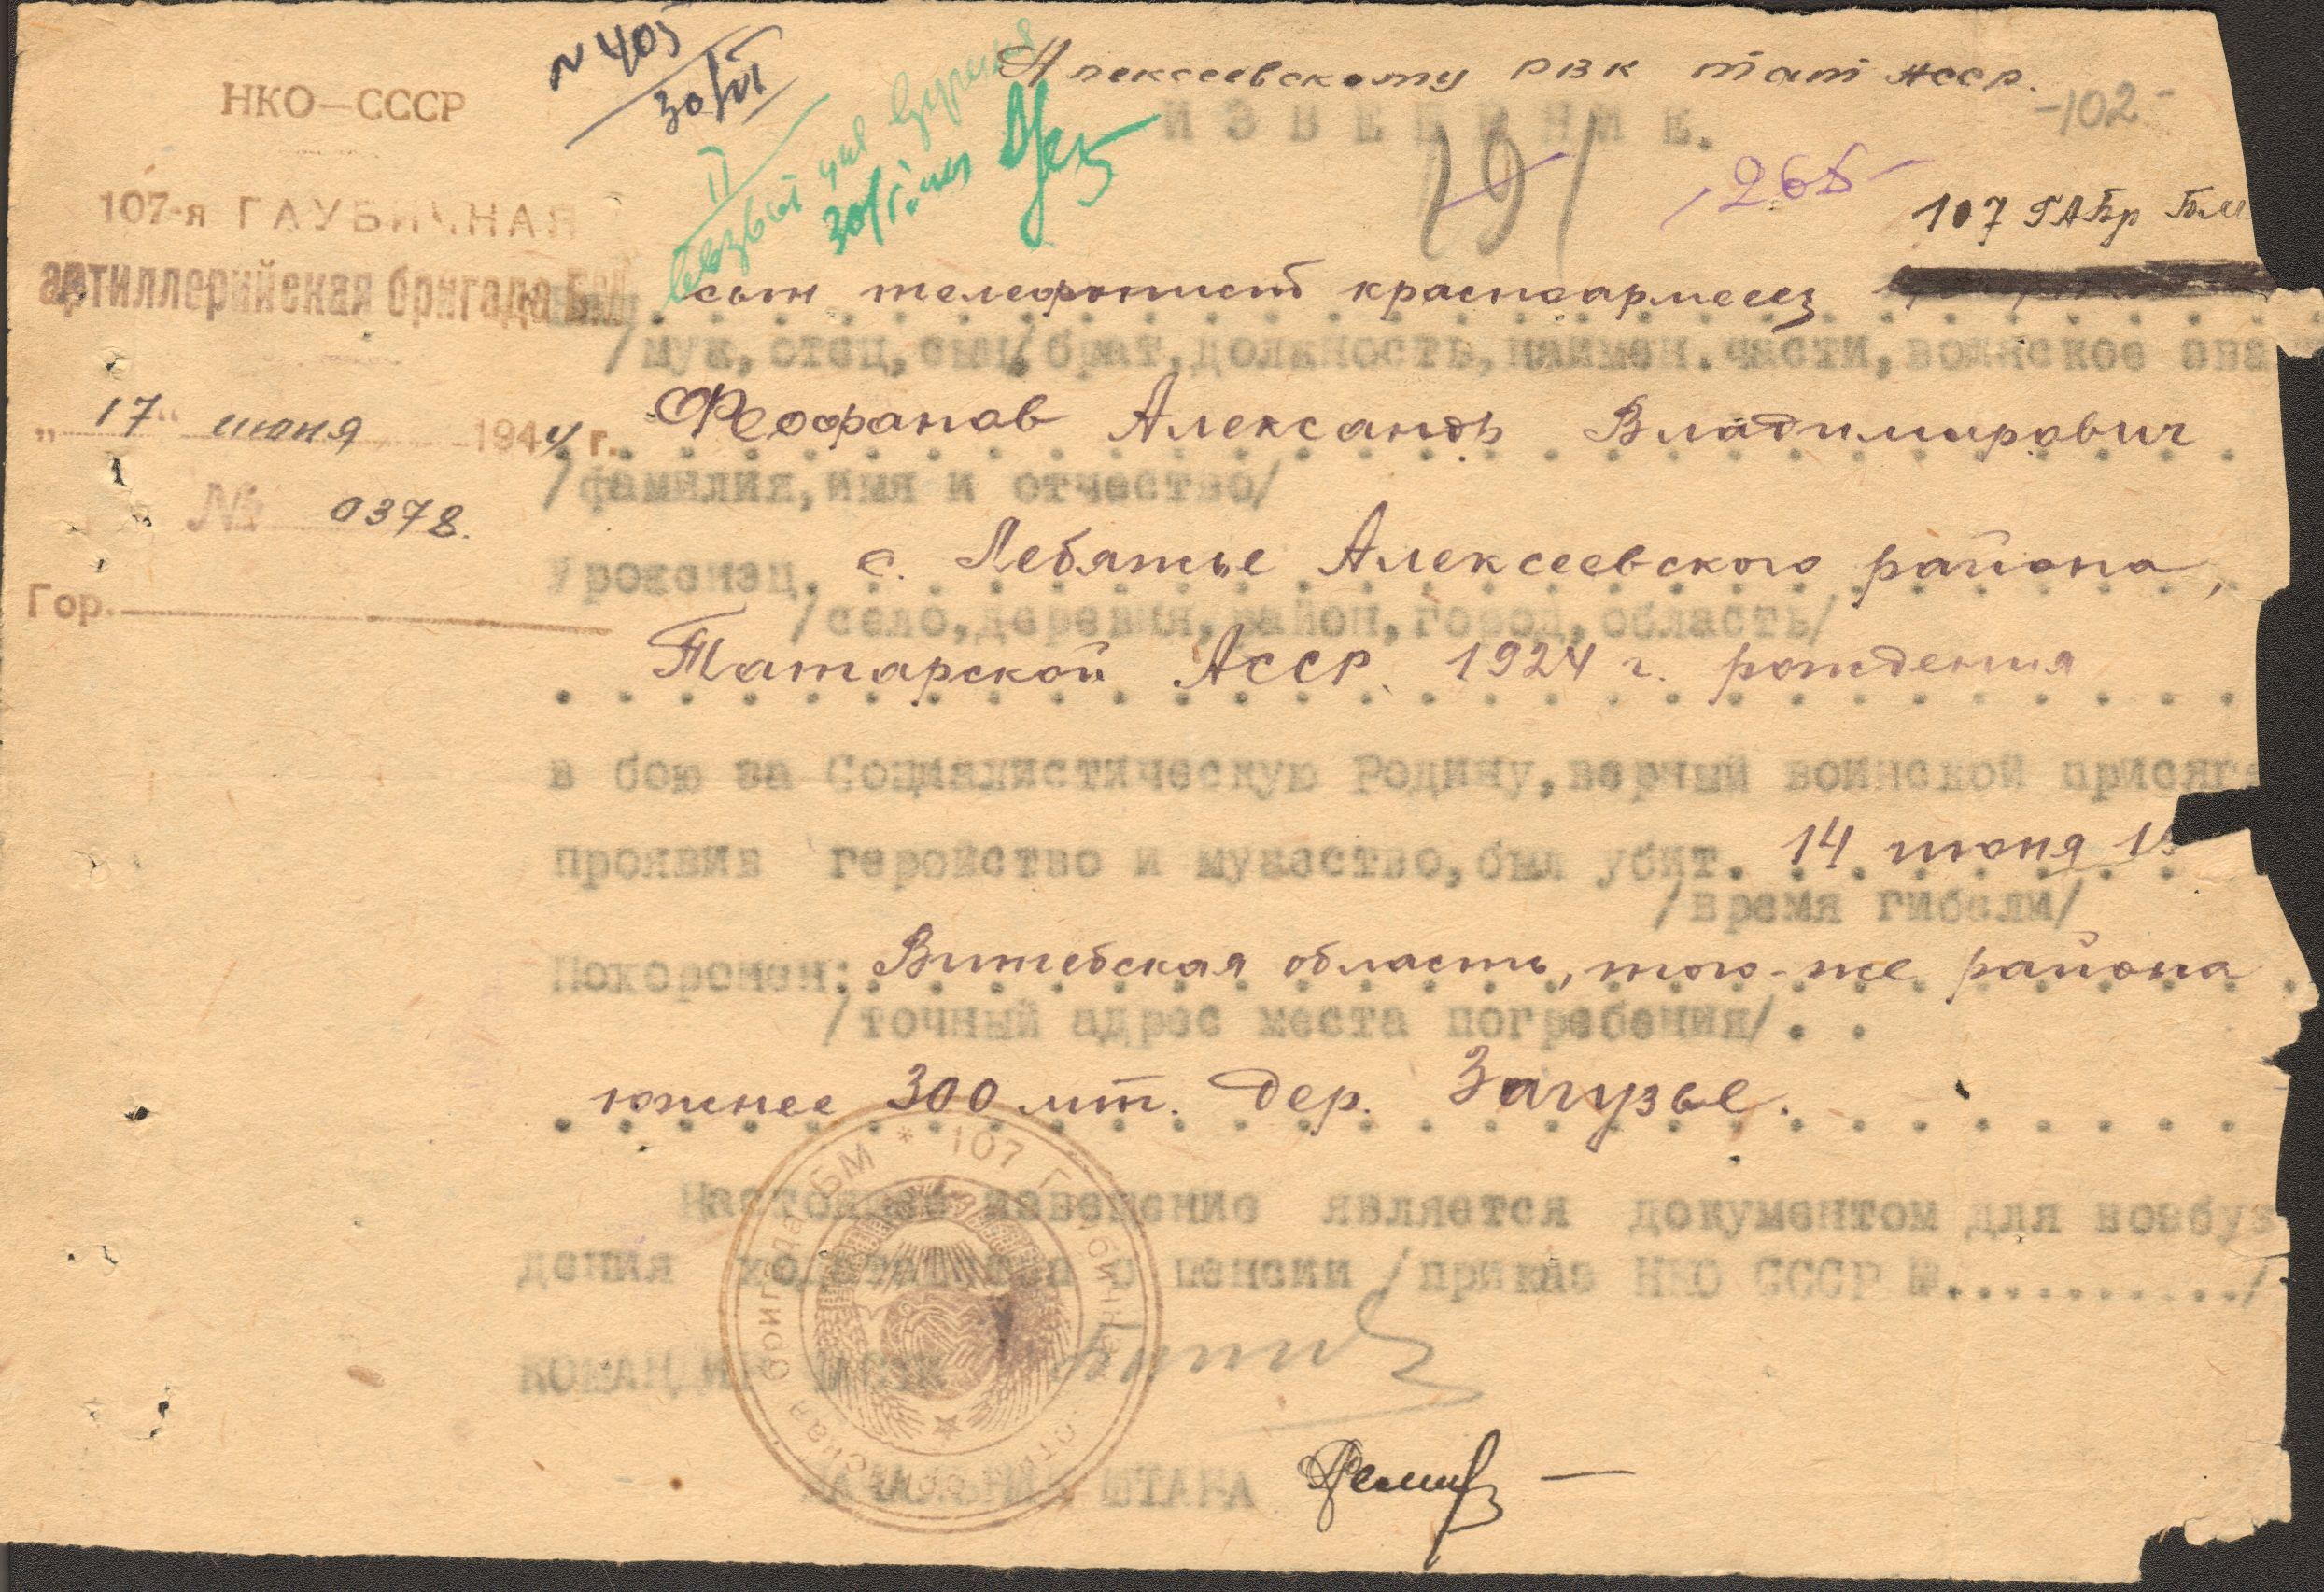 Алексеевскому РВК тат АССР.
№ 405
30/VI
-102-
НКО—СССР
ИЗВЕЩЕНИЕ.
191
265
107-я ГАУБИЧНАЯ
артиллерийская бригада БМ
107 ГАБр БМ
II
30/VI
Ваш сын телефонист красноармеец
/муж, отец, сын, брат, должность, наимен. части, воинское зва
„17“ июня 1944 г.
Феофанов Александр Владимирович
/фамилия, имя и отчество/
№ 0378.
Уроженец с. Лебяжье Алексеевского района,
/село, деревня, район, город, область/
Гор.
Татарской АССР. 1924 г. рождения
в бою за Социалистическую Родину, верный воинской присяге
проявив геройство и мужество, был убит. 14 июня 19
/время гибели/
Похоронен: Витебская область, того-же района
/точный адрес места погребения/..
южнее 300 мт. дер. Загузье.
Настоящее извещение является документом для возбуж
дения ходатайства о пенсии /приказ НКО СССР №........../
КОМАНДИР ЧАСТИ
НАЧАЛЬНИК ШТАБА
* 107 Гаубичная артиллерийская бригада БМ